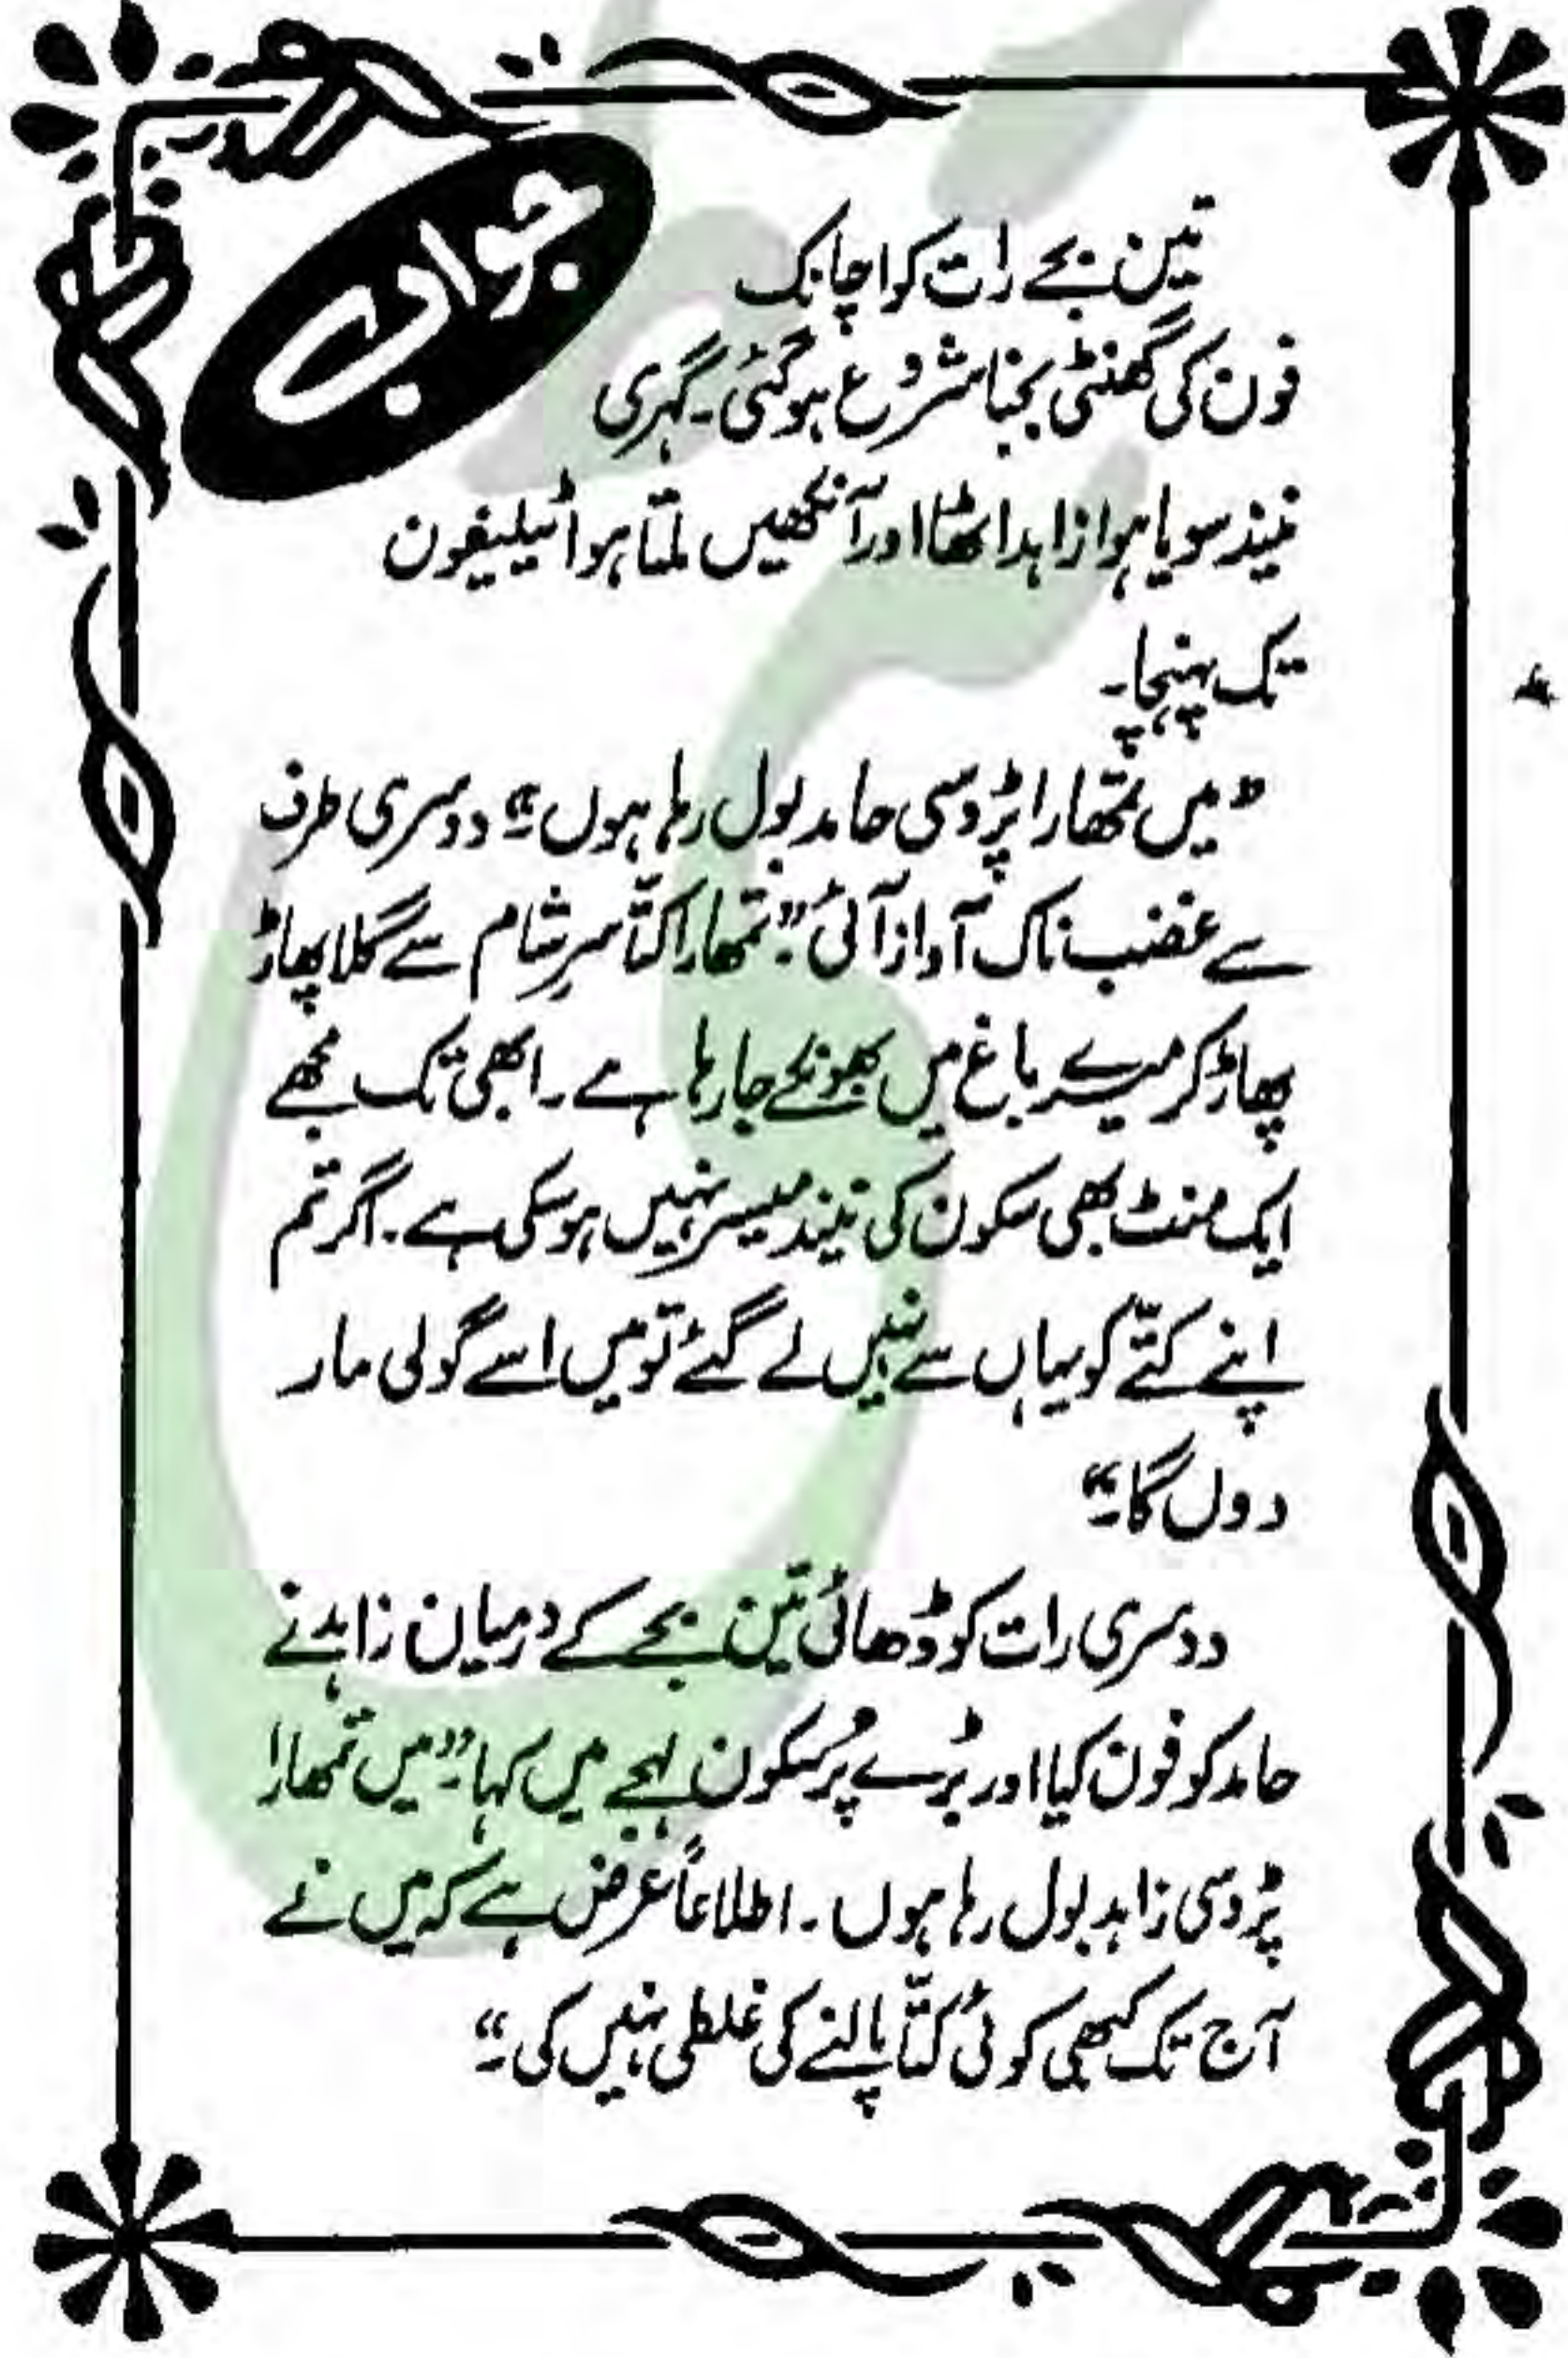 جوابی
تین بجے رات کو اچانک
فون کی گھنٹی بجنا شروع ہو گئی۔ گہری
نیند سویا ہوا زاہد اٹھا اور آنکھیں ملتا ہوا ٹیلیفون
تک پہنچا۔
”میں تمھارا پڑوسی حامد بول رہا ہوں۔“ دوسری طرف
سے غضب ناک آواز آئی۔ ”تمھارا کتّا سرِ شام سے گلا پھاڑ
پھاڑ کر میرے باغ میں بھونکے جا رہا ہے۔ ابھی تک مجھے
ایک منٹ بھی سکون کی نیند میسر نہیں ہو سکی ہے۔ اگر تم
اپنے کتّے کو یہاں سے نہیں لے گئے تو میں اسے گولی مار
دوں گا۔“
دوسری رات کو ڈھائی تین بجے کے درمیان زاہد نے
حامد کو فون کیا اور بڑے پُرسکون لہجے میں کہا۔ ”میں تمھارا
پڑوسی زاہد بول رہا ہوں۔ اطلاعاً عرض ہے کہ میں نے
آج تک کبھی کوئی کتّا پالنے کی غلطی نہیں کی۔“